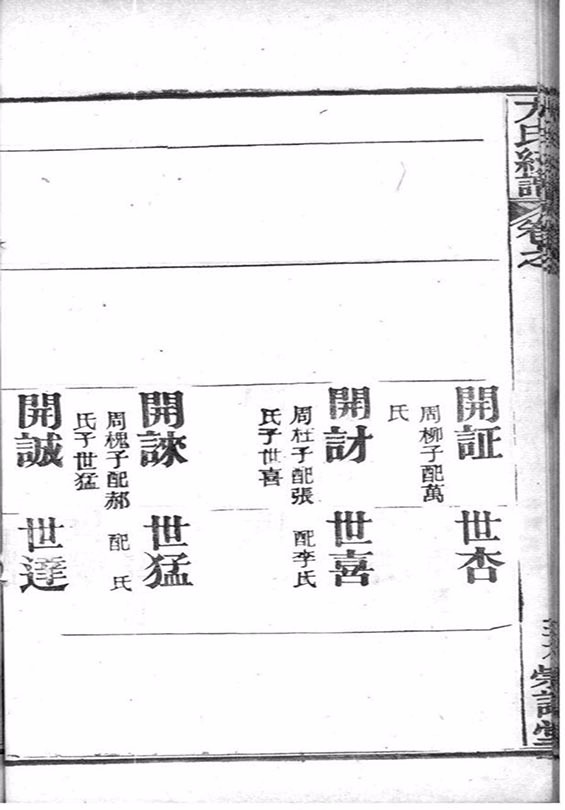 氏
卷之
開証
周柳子配萬
氏
開訲
周杜子配張
氏子世喜
開誺
周槐子配郝
氏子世猛
開誠
世杏
世喜
配李氏
世猛
配 氏
世達